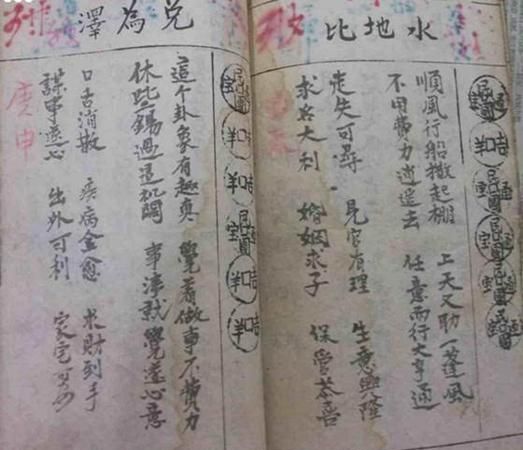 水地比
順風行船撒起棚 上天又助一蓬風
不用費力逍遥去 任意而行大亨通
走失可尋 見官有理 生意興隆
求名大利 婚姻求子 保管恭喜
兌為澤
這个卦象有趣真 覺着做事不費力
休些錫過這机関 事事就覺遂心意
口舌消散 疾病全愈 求財到手
謀事遂心 出外可利 家宅
庚申